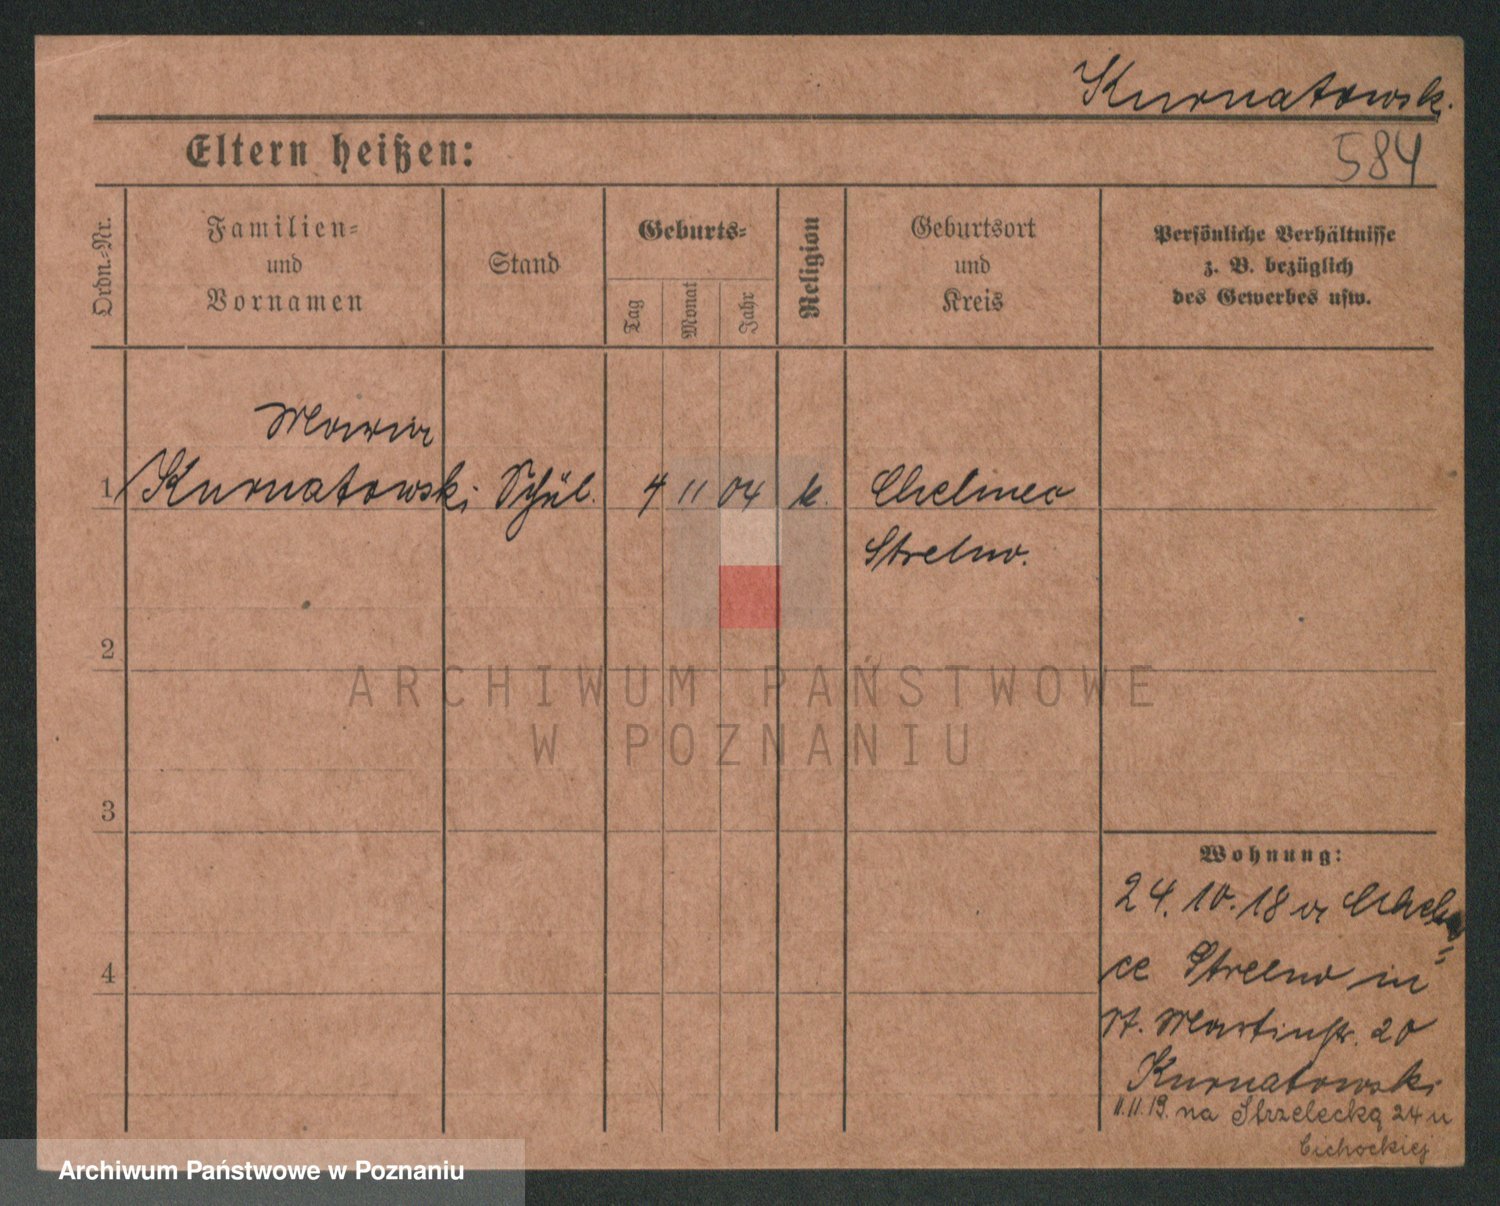 Kurnatowsk.
Eltern heißen:
584
Ordn.-Nr.
Familien-
und
Vornamen
Stand
Geburts-
Tag
Monat
Jahr
Religion
Geburtsort
und
Kreis
Persönliche Verhältnisse
z. B. bezüglich
des Gewerbes usw.
Maria
1 Kurnatowski Schül. 4 11 04 k. Chelmce
Strelno.
2
ARCHIWUM PAŃSTWOWE
W POZNANIU
3
Wohnung:
24.10.18 v
4
ce Strelno in
St. Martinstr. 20
Kurnatowski
11.11.19. na Strzelecką 24 u
Cichockiej
Archiwum Państwowe w Poznaniu